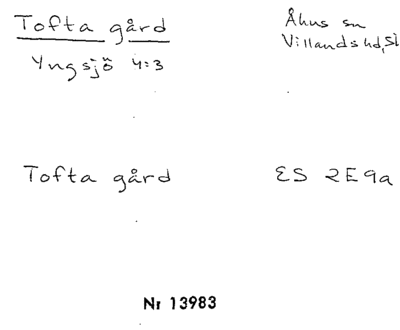 Tofta gård
Åhus sn
Yngsjö 4:3
Villands hd, Sk
Tofta gård
ES 2E9a
Nr 13983